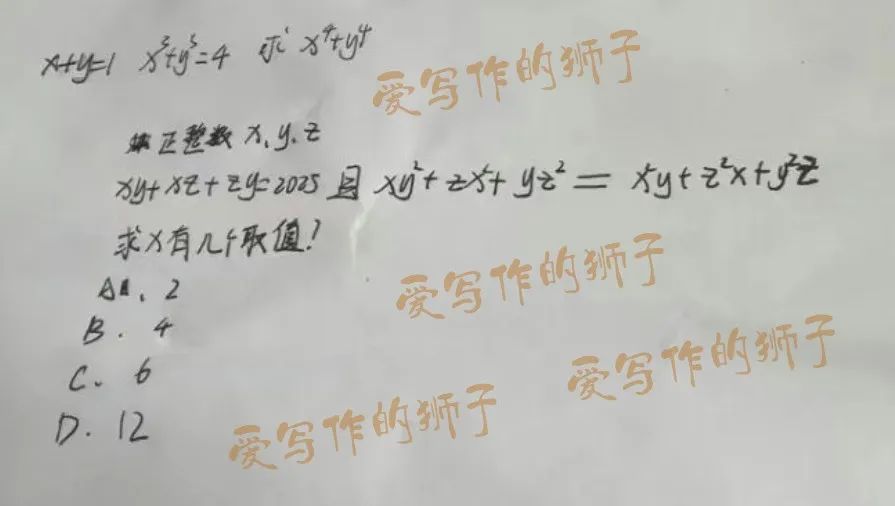 x+y=1 x³+y³=4 求 x⁴+y⁴
爱写作的狮子
正整数 x、y、z
xy+xz+zy=2025 且 xy²+zx²+yz² = x²y+z²x+y²z
求x有几个取值?
爱写作的狮子
A、2
B. 4
C. 6
爱写作的狮子
D. 12
爱写作的狮子